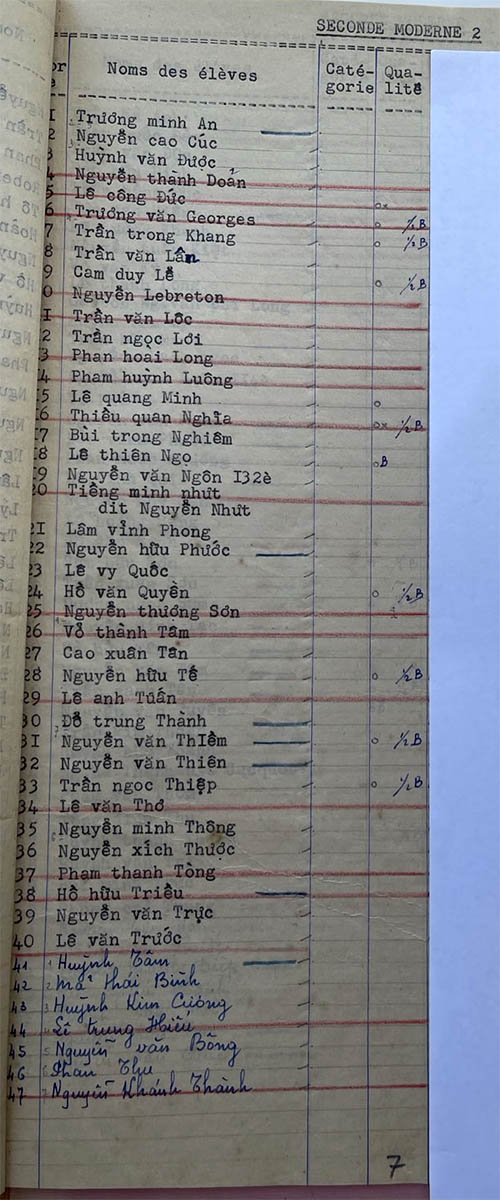 SECONDE MODERNE 2
Noms des élèves Caté- Qua-
gorie lité
I Trương minh An
2 Nguyễn cao Cúc
3 Huỳnh văn Được
4 Nguyễn thành Doãn
5 Lê công Đức
6 Trương văn Georges ½B
7 Trần trong Khang ½B
8 Trần văn Lân
9 Cam duy Lễ ½B
0 Nguyễn Lebreton
I Trần văn Lôc
2 Trần ngọc Lơi
3 Phan hoai Long
4 Pham huỳnh Luông
5 Lê quang Minh
6 Thiều quan Nghĩa ½B
7 Bùi trong Nghiêm
8 Lê thiên Ngọ B
9 Nguyễn văn Ngôn I32è
20 Tiềng minh nhưt
dit Nguyễn Nhưt
2I Lâm vỉnh Phong
22 Nguyễn hữu Phước
23 Lê vy Quốc
24 Hồ văn Quyền ½B
25 Nguyễn thương Sơn
26 Vỏ thành Tâm
27 Cao xuân Tân
28 Nguyễn hữu Tế ½B
29 Lê anh Tuấn
30 Đỗ trung Thành
3I Nguyễn văn ThIềm ½B
32 Nguyễn văn Thiên
33 Trần ngoc Thiệp ½B
34 Lê văn Thơ
35 Nguyễn minh Thông
36 Nguyễn xích Thước
37 Pham thanh Tòng
38 Hồ hữu Triều
39 Nguyễn văn Trực
40 Lê văn Trước
41 1 Huỳnh Tâm
42 2 Mai thái Bình
43 3 Huỳnh Kim Cương
44 Lê trung Hiếu
45 5 Nguyễn văn Bông
46 6 Phan Thu
47 7 Nguyễn Khánh Thành
7